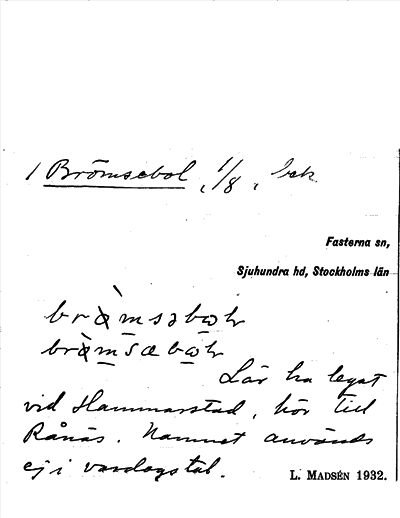 / Brömsebol, 1/8, bek.
Fasterna sn,
Sjuhundra hd, Stockholms län
Lär ha legat
vid Hammarstad, hör till
Rånäs. Namnet används
ej i vardagstal.
L. MADSÉN 1932.